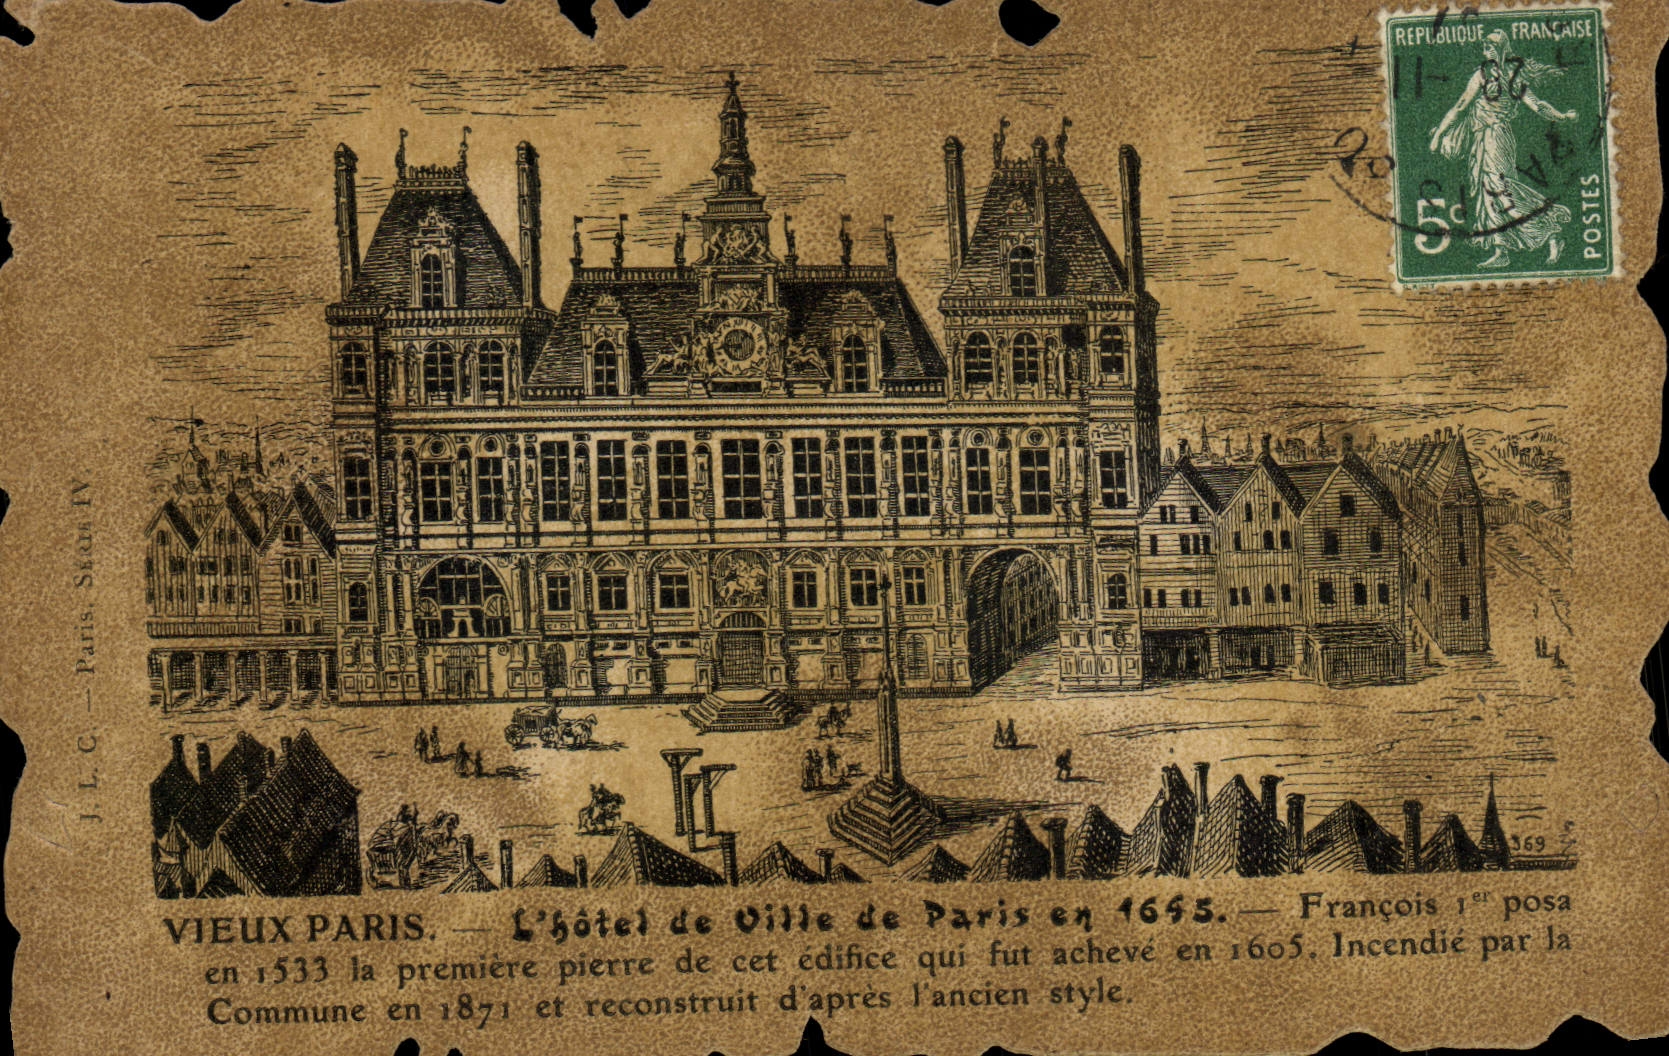 REPUBLIQUE FRANÇAISE
5c
POSTES
J. L. C. — Paris
369
VIEUX PARIS. — L'hôtel de Ville de Paris en 1645. — François 1er posa
en 1533 la première pierre de cet édifice qui fut achevé en 1605. Incendié par la
Commune en 1871 et reconstruit d'après l'ancien style.